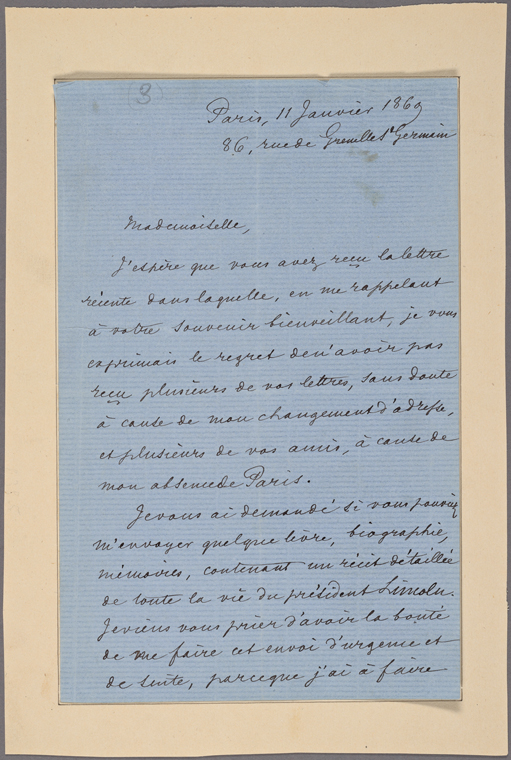 (3)
Paris, 11 Janvier 1869
86, rue de Grenelle St Germain
Mademoiselle,
J'espère que vous avez reçu la lettre
récente dans laquelle, en me rappelant
à votre souvenir bienveillant, je vous
exprimais le regret de n'avoir pas
reçu plusieurs de vos lettres, sans doute
à cause de mon changement d'adresse,
et plusieurs de vos amis, à cause de
mon absence de Paris.
Je vous ai demandé si vous pouviez
m'envoyer quelque livre, biographie,
mémoires, contenant un récit détaillé
de toute la vie du président Lincoln.
Je viens vous prier d'avoir la bonté
de me faire cet envoi d'urgence et
de suite, parceque j'ai à faire